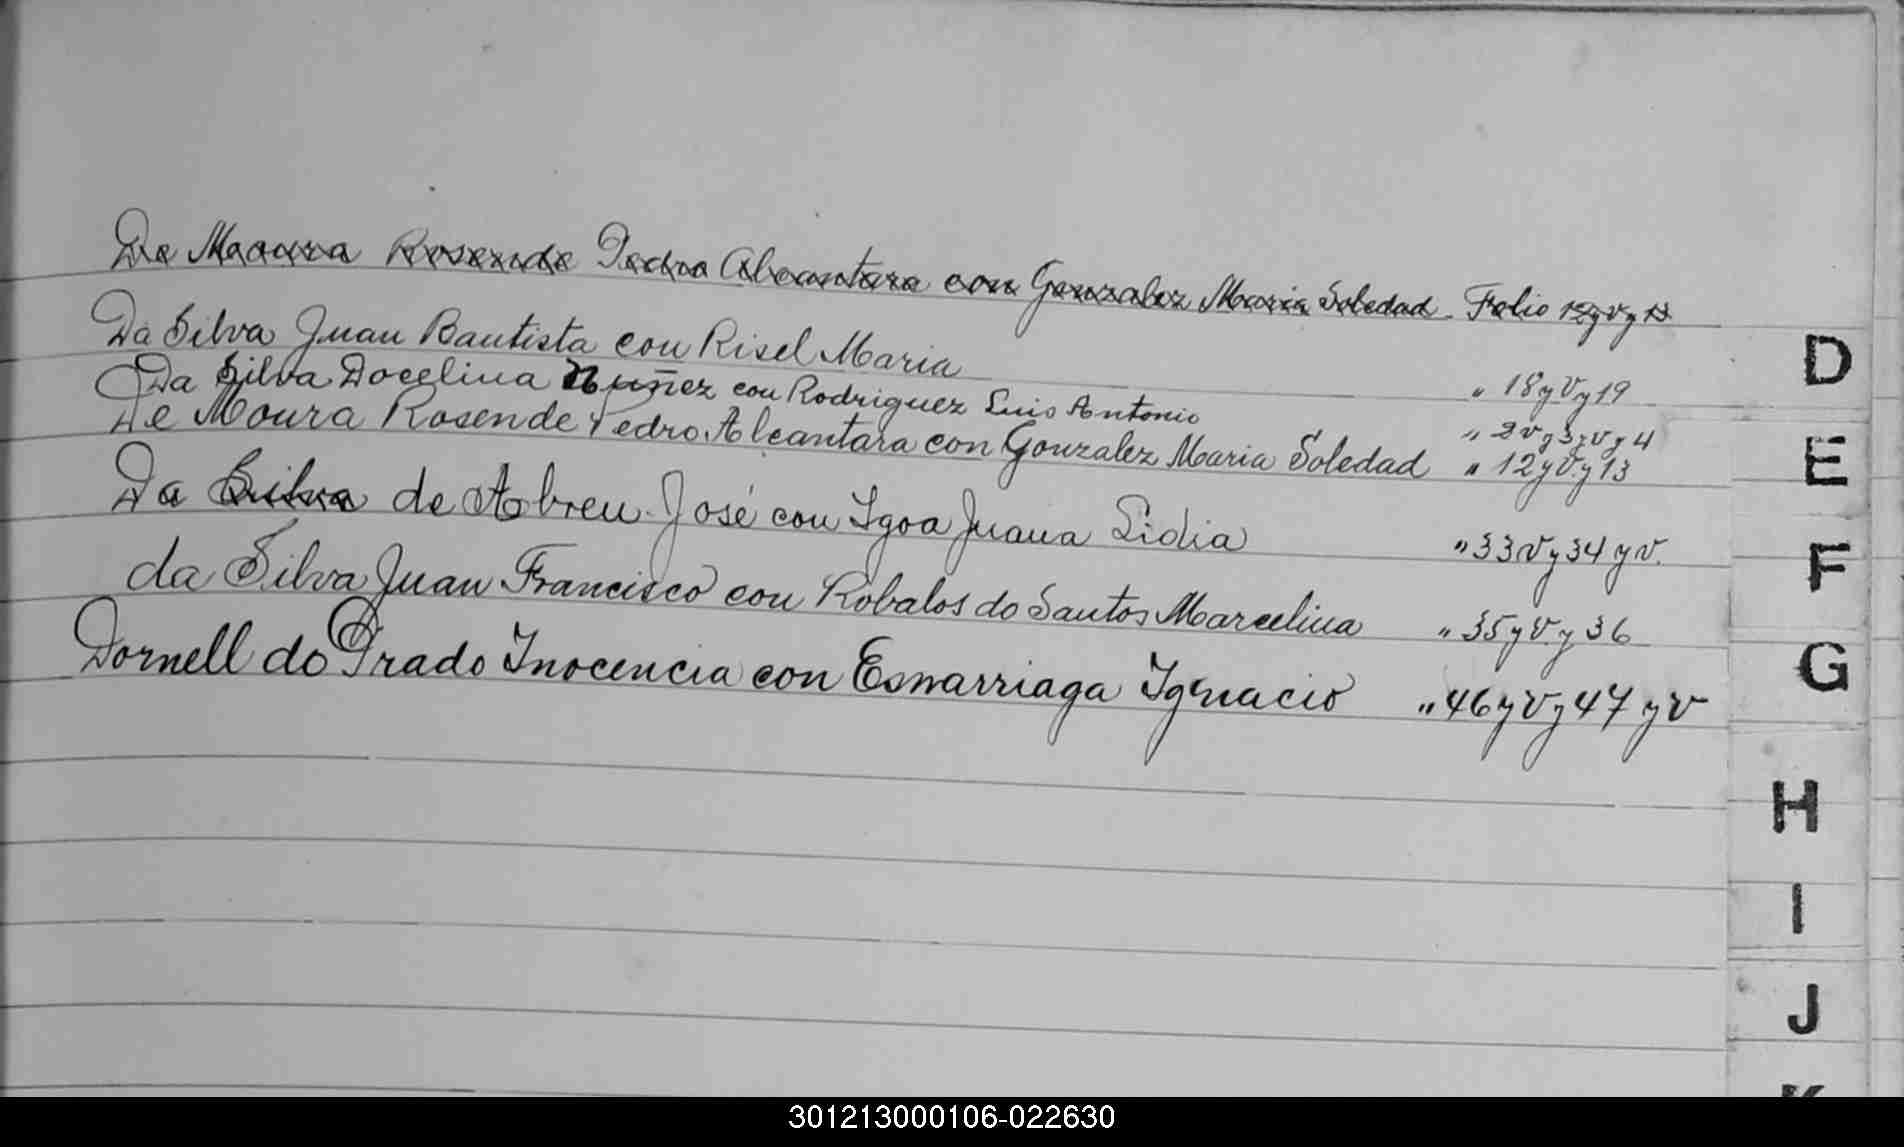 De Moura Rosende Pedro Alcantara con Gonzalez Maria Soledad Folio 12 y v y 13
Da Silva Juan Bautista con Risel Maria " 18 y V y 19
Da Silva Docelina Nuñez con Rodriguez Luis Antonio " 2 v y 3 y v y 4
De Moura Rosende Pedro Alcantara con Gonzalez Maria Soledad " 12 y V y 13
Da Silva de Abreu José con Igoa Juana Lidia " 33 v y 34 y v.
da Silva Juan Francisco con Robalos do Santos Marcelina " 35 y V y 36
Dornell do Prado Inocencia con Esnarriaga Ignacio " 46 y V y 47 y V
D
E
F
G
H
I
J
K
301213000106-022630